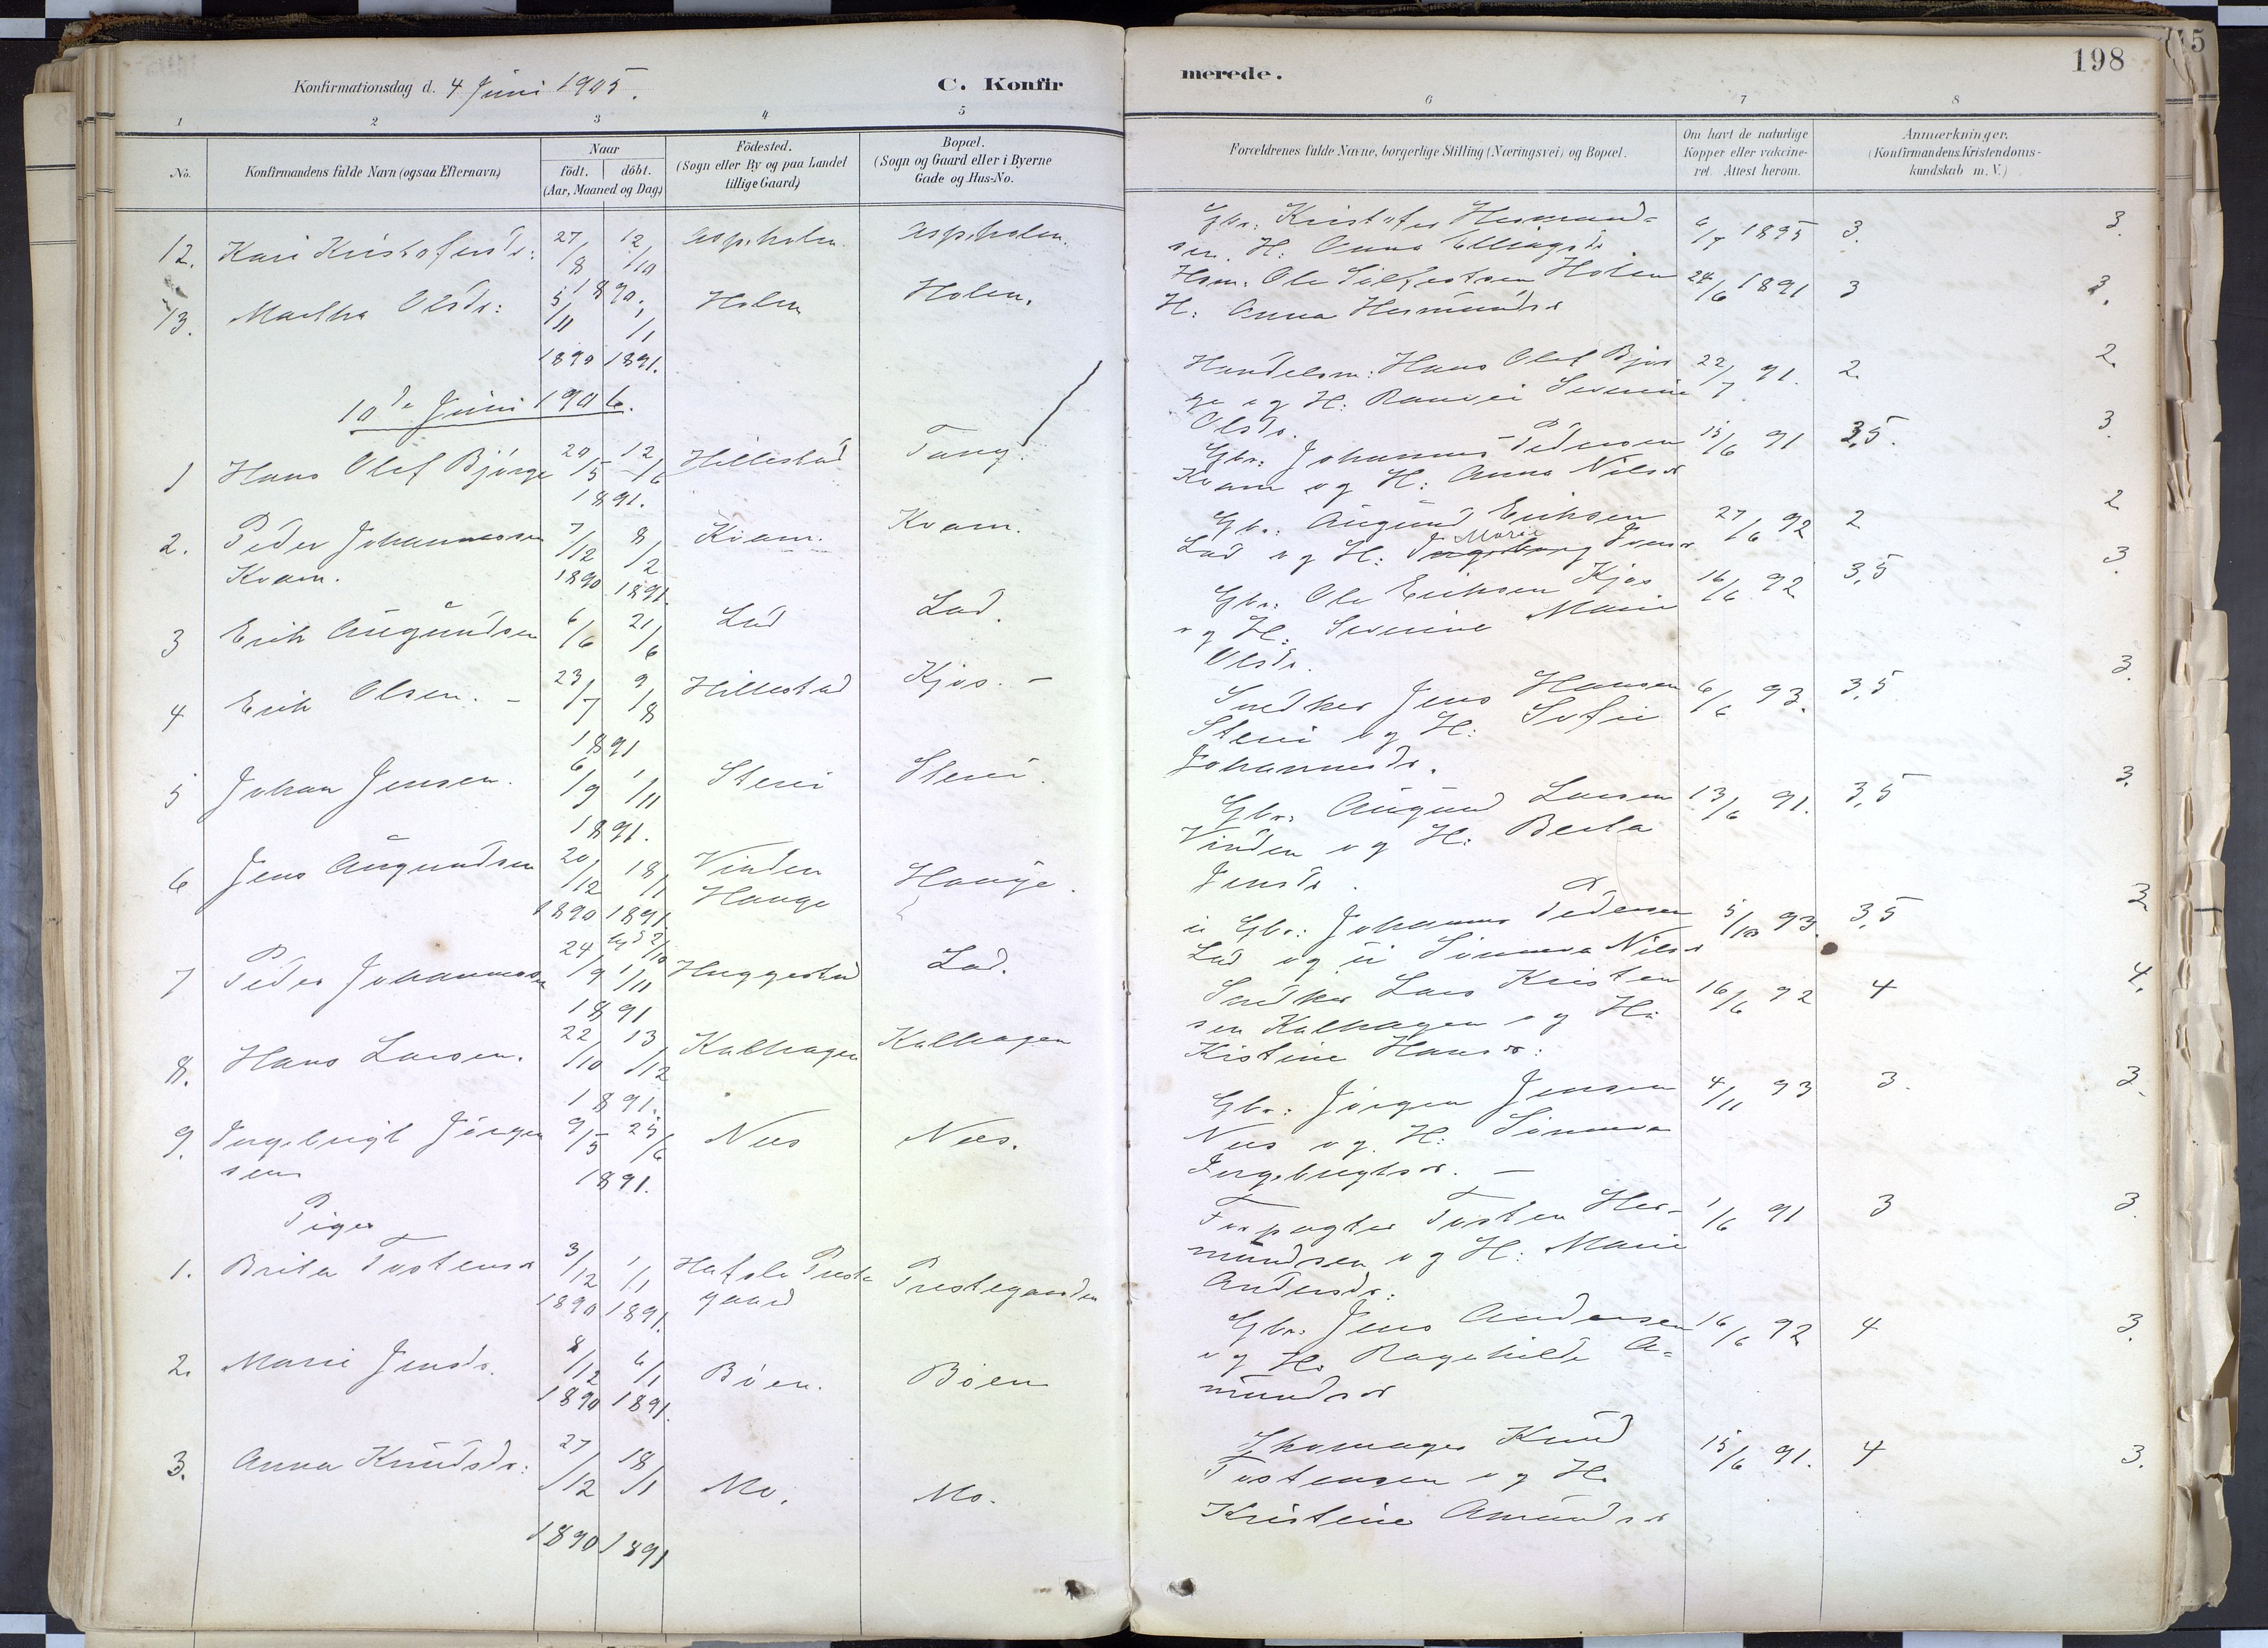 198
Konfirmationsdag d. 4 Juni 1905.
C. Konfirmerede.
1 2 3 4 5 6 7 8
No.
Konfirmandens fulde Navn (ogsaa Efternavn)
Naar
födt. döbt.
(Aar, Maaned og Dag)
Födested.
(Sogn eller By og paa Landet
tillige Gaard)
Bopæl.
(Sogn og Gaard eller i Byerne
Gade og Hus-No.
Forældrenes fulde Navne, borgerlige Stilling (Næringsvei) og Bopæl.
Om havt de naturlige
Kopper eller vakcine-
ret. Attest herom.
Anmærkninger.
(Konfirmandens Kristendoms-
kundskab m. V.)
12. Kari Kristofersdr: 27/8 12/10 1890. Aspholen. Aspholen.
Gbr: Kristofer Hermund-
sen. H: Anna Ellingsdr 6/7 1895 3. 3.
13. Martha Olsdr: 5/11 1890 1/1 1891. Holen Holen.
Hsm. Ole Sulfestsen Holen
H: Anna Hermundsdr 24/6 1891 3 3.
10de Juni 1906.
1 Hans Olef Bjørge 20/5 12/6 1891. Hillestad Tang.
Handelsm: Hans Olef Bjør
ge og H: Ranvei Severine
Olsdr. 22/7 91. 2. 2.
2. Peder Johannessen
Kvam. 7/12 1890 8/2 1891. Kvam. Kvam.
Gbr. Johannes Pedersen
Kvam og H: Anna Nilsdr 15/6 91 3,5. 3.
3 Erik Augundsen 6/6 21/6 Lad Lad.
Gbr. Augund Eriksen
Lad og H: Ingeborg Marie Iversdr 27/6 92 2 2
4 Erik Olsen. - 23/7 9/8 1891 Hillestad Kjos. -
Gbr. Ole Eriksen Kjos
og H. Severine Marie
Olsdr. 16/6 92 3,5 3.
5 Johan Jensen. 6/9 1/11 1891. Steni Steni.
Snedker Jens Hansen
Steni og H: Sofie
Johannesdr. 6/6 93. 3,5 3.
6 Jens Augundsen 20/12 1890 18/1 1891. Vinden
Hauge Hauge.
Gbr. Augund Larsen
Vinden og H: Berta
Jensdr. 13/6 91. 3,5 3.
7 Peder Johannessen 24/9 1/11 1891 Huggestad Lad.
u Gbr: Johannes Pedersen
Lad og u Sunneva Nilsdr 5/10 93. 3,5 3
8. Hans Larsen. 22/10 13/12 1891. Kalhagen Kalhagen
Snedker Lars Kristen
sen Kalhagen og H:
Kistine Hansdr: 16/6 92 4 4.
9. Ingebrigt Jørgen
sen 9/5 25/6 1891. Nes Nes.
Gbr: Jørgen Jensen
Nes og H: Sunneva
Ingebrigtsdr. - 4/11 93 3. 3.
Piger
1. Brita Tostensdr 3/12 1890 1/1 1891. Hafslo Preste
gaard Prestegaarden
Forpagter Tosten Her-
mundsen og H: Marie
Andersdr: 1/6 91 3 3.
2. Marie Jensdr. 8/12 1890 6/1 1891. Bøen. Bøen
Gbr. Jens Andersen
og H. Ragnhilde A-
mundsdr 16/6 92 4 3.
3. Anna Knudsdr: 27/12 1890 18/1 1891 Mo. Mo.
Skomager Knud
Tostensen og H.
Kristine Amundsdr 15/6 91. 4 3.